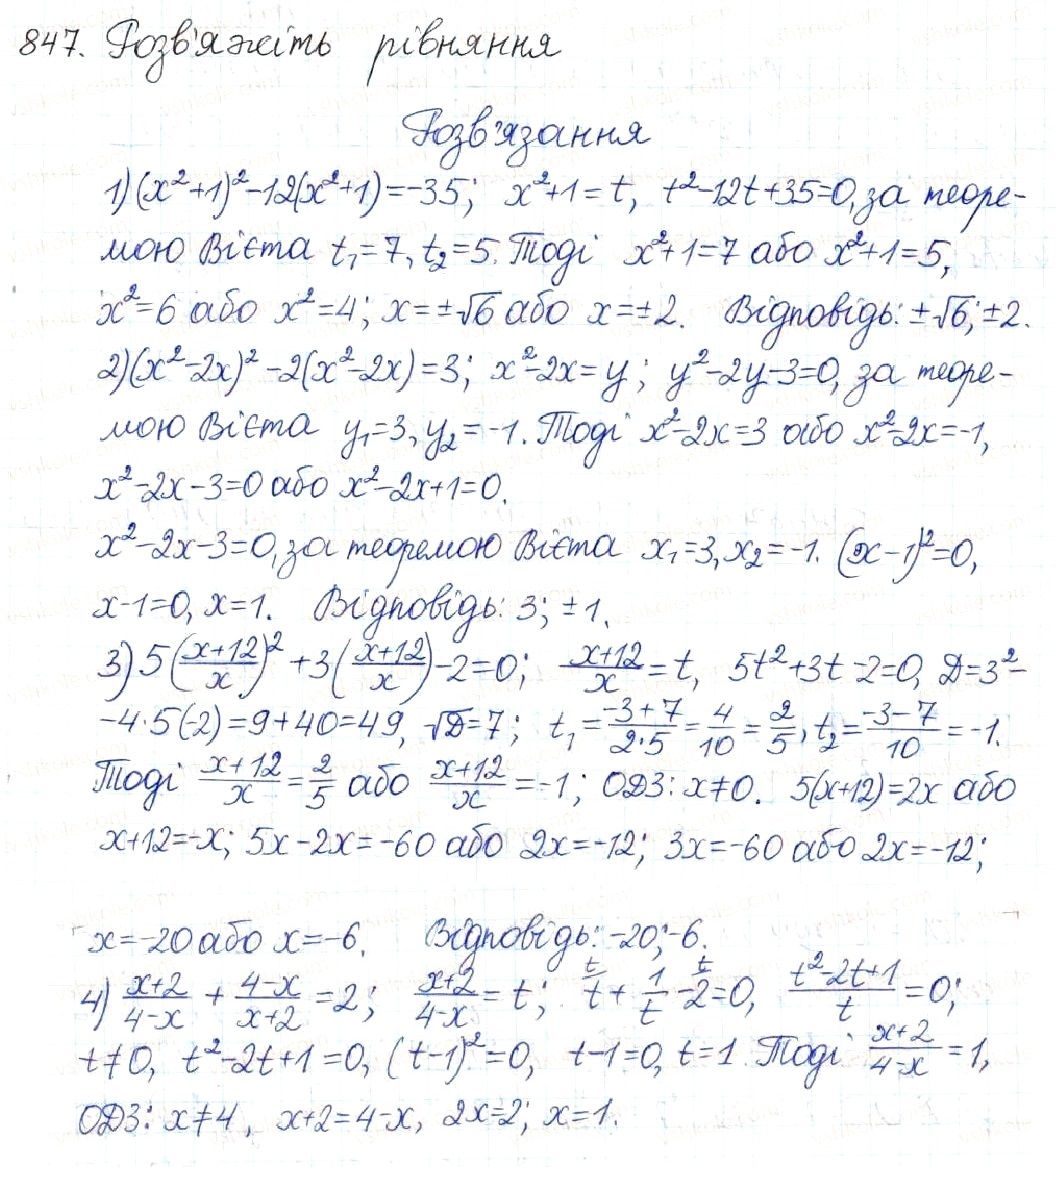 847. Розв'яжіть рівняння
Розв'язання
1) (x²+1)²-12(x²+1)=-35; x²+1=t, t²-12t+35=0, за теоре-
мою Вієта t₁=7, t₂=5. Тоді x²+1=7 або x²+1=5,
x²=6 або x²=4; x=±√6 або x=±2. Відповідь: ±√6; ±2.
2) (x²-2x)²-2(x²-2x)=3; x²-2x=y; y²-2y-3=0, за теоре-
мою Вієта y₁=3, y₂=-1. Тоді x²-2x=3 або x²-2x=-1,
x²-2x-3=0 або x²-2x+1=0.
x²-2x-3=0, за теоремою Вієта x₁=3, x₂=-1. (x-1)²=0,
x-1=0, x=1. Відповідь: 3; ±1.
3) 5((x+12)/x)²+3((x+12)/x)-2=0; (x+12)/x=t, 5t²+3t-2=0, D=3²-
-4·5(-2)=9+40=49, √D=7; t₁=(-3+7)/(2·5)=4/10=2/5, t₂=(-3-7)/10=-1.
Тоді (x+12)/x=2/5 або (x+12)/x=-1; ОДЗ: x≠0. 5(x+12)=2x або
x+12=-x; 5x-2x=-60 або 2x=-12; 3x=-60 або 2x=-12;
x=-20 або x=-6. Відповідь: -20; -6.
4) (x+2)/(4-x)+(4-x)/(x+2)=2; (x+2)/(4-x)=t; t/t+1/t-t/2=0, (t²-2t+1)/t=0;
t≠0, t²-2t+1=0, (t-1)²=0, t-1=0, t=1. Тоді (x+2)/(4-x)=1,
ОДЗ: x≠4, x+2=4-x, 2x=2; x=1.